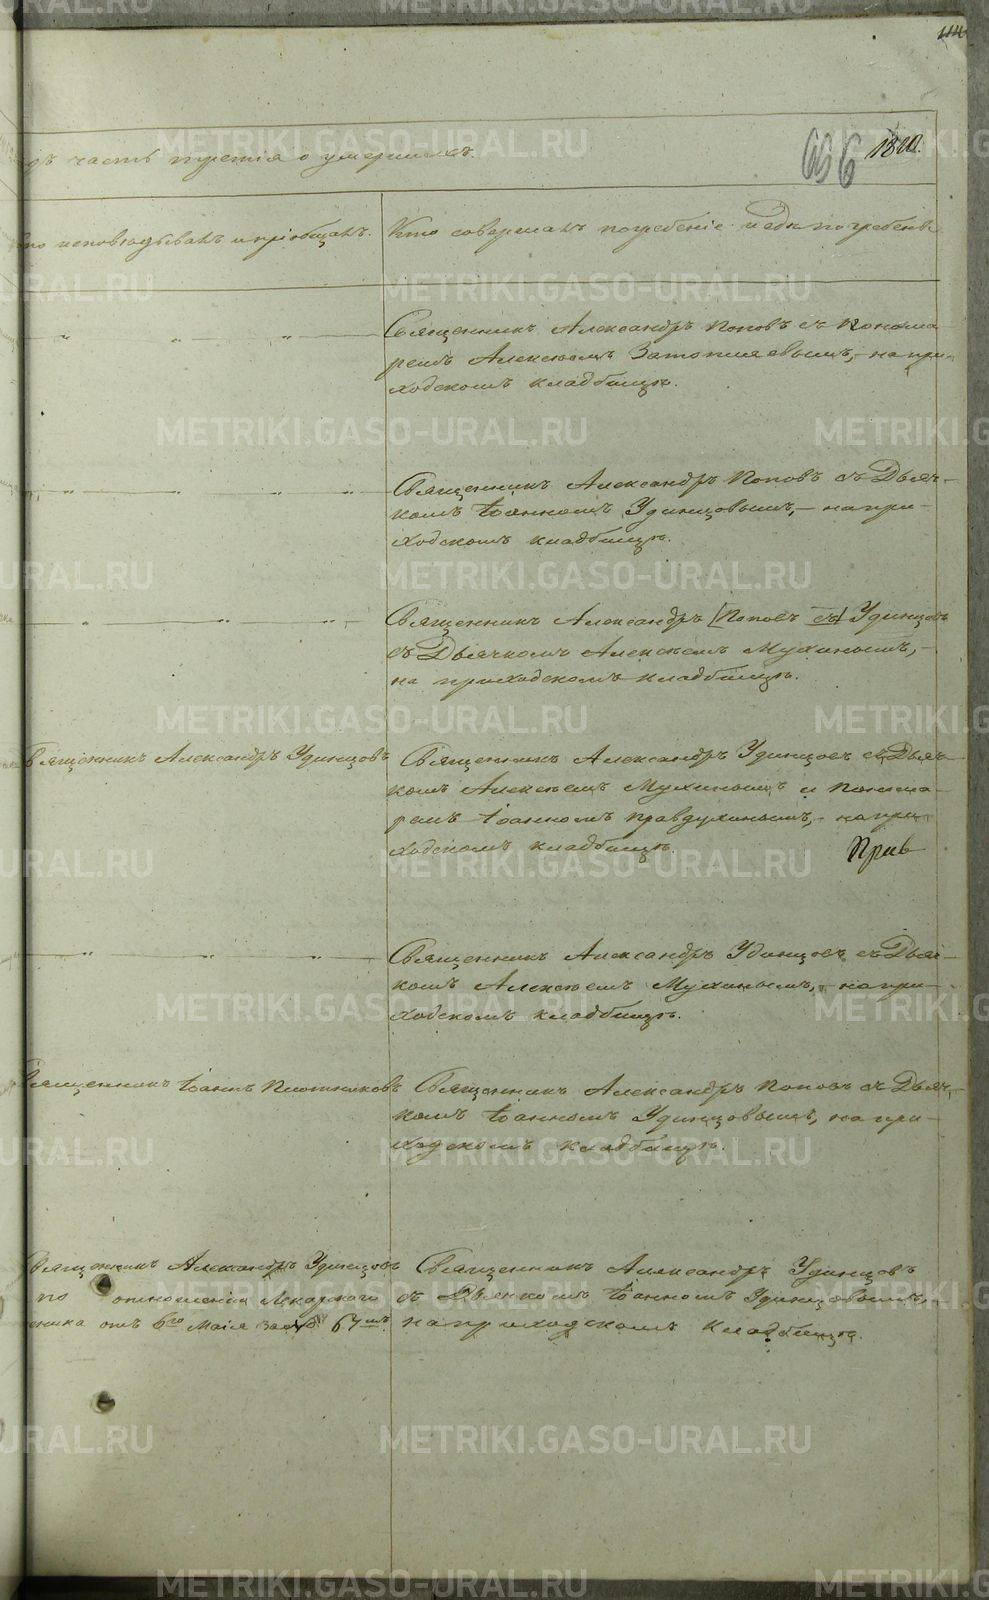 часть третія о умершихъ.
исповѣдывалъ и пріобщалъ.
Кто совершалъ погребеніе и гдѣ погребены.
Священникъ Александръ Поповъ съ Понома
ремъ Алексѣемъ на при-
ходскомъ кладбищѣ.
Священникъ Александръ Поповъ съ Дьяч-
комъ Іоанномъ Удинцовымъ, — на при-
ходскомъ кладбищѣ.
Священникъ Александръ [Поповъ съ] Удинцовъ
съ Дьячкомъ Алексѣемъ Мухинымъ, —
на приходскомъ кладбищѣ.
Священникъ Александръ Удинцовъ
Священникъ Александръ Удинцовъ съ Дьяч-
комъ Алексѣемъ Мухинымъ и Понома-
ремъ Іоанномъ Правдухинымъ, — на при-
ходскомъ кладбищѣ.
Прив
Священникъ Александръ Удинцовъ съ Дьяч-
комъ Алексѣемъ Мухинымъ, — на при-
ходскомъ кладбищѣ.
Священникъ Іоаннъ Плотниковъ
Священникъ Александръ Поповъ съ Дьяч-
комъ Іоанномъ Удинцовымъ, на при-
ходскомъ кладбищѣ.
Священникъ Александръ Удинцовъ
по отношенію Лекарского
отъ 6го Маія за № 67мъ.
Священникъ Александръ Удинцовъ
съ Дьячкомъ Іоанномъ Удинцовымъ, —
на приходскомъ кладбищѣ.
METRIKI.GASO-URAL.RU